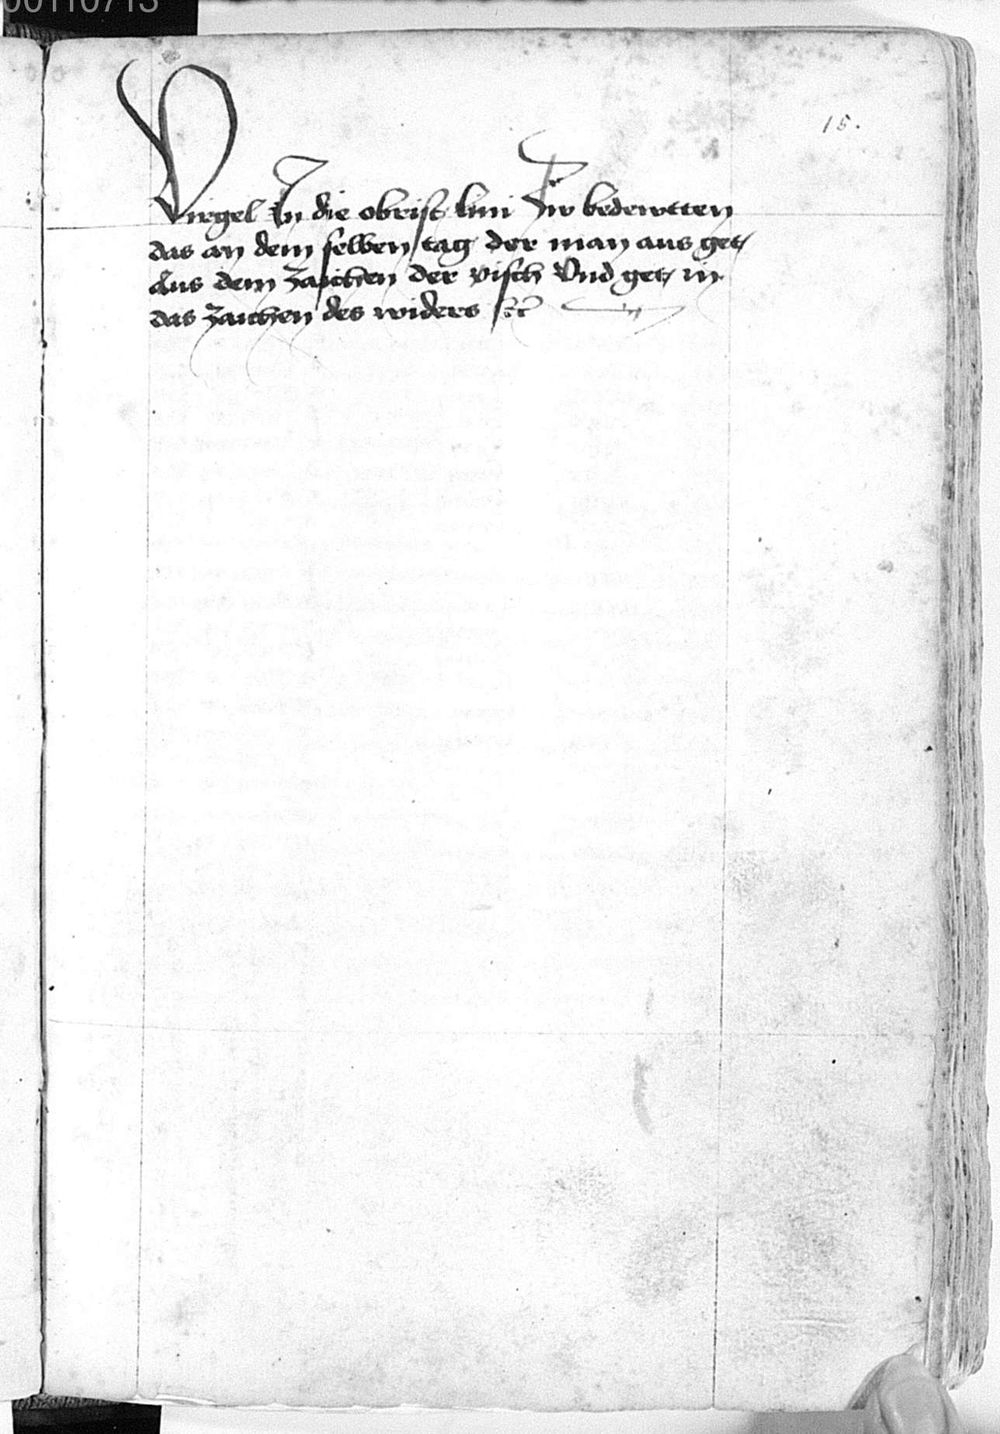 00110713
15.
Virgel In die obrist lini Zw bedewtten
das an dem selben tag der man aus get
Aus dem Zaichen der visch Vnd get in
das Zaichen des widers etc